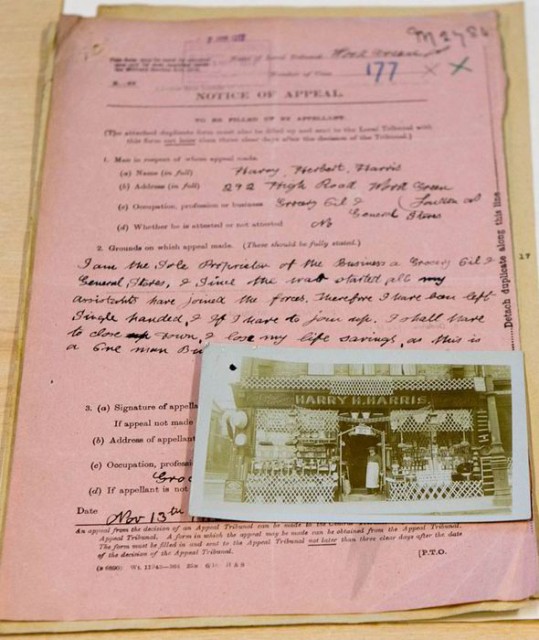 M2782
Name of Local Tribunal Wood Green
Number of Case 177
R. 43
NOTICE OF APPEAL.
TO BE FILLED UP BY APPELLANT.
(The attached duplicate form must also be filled up and sent to the Local Tribunal with
this form not later than three clear days after the decision of the Tribunal.)
1. Man in respect of whom appeal made.
(a) Name (in full) Harry, Herbert, Harris
(b) Address (in full) 292 High Road Wood Green
(c) Occupation, profession or business Grocery Oil &
General Stores
(d) Whether he is attested or not attested No
2. Grounds on which appeal made. (These should be fully stated.)
I am the Sole Proprietor of the Business a Grocery Oil &
General Stores, & Since the war started all my
assistants have joined the forces. Therefore I have been left
Single handed, & If I have to join up. I shall have
to close down, & lose my life savings, as this is
a One man Bu
HARRY H. HARRIS
3. (a) Signature of appella
If appeal not made
(b) Address of appellant
(c) Occupation, profess
Groc
(d) If appellant is not
Date Nov 13th
An appeal from the decision of an Appeal Tribunal can be made to the
Appeal Tribunal. A form in which the appeal may be made can be obtained from the Appeal
The form must be filled in and sent to the Appeal Tribunal not later than three clear days after the date
of the decision of the Appeal Tribunal.
[P.T.O.
Detach duplicate along this line